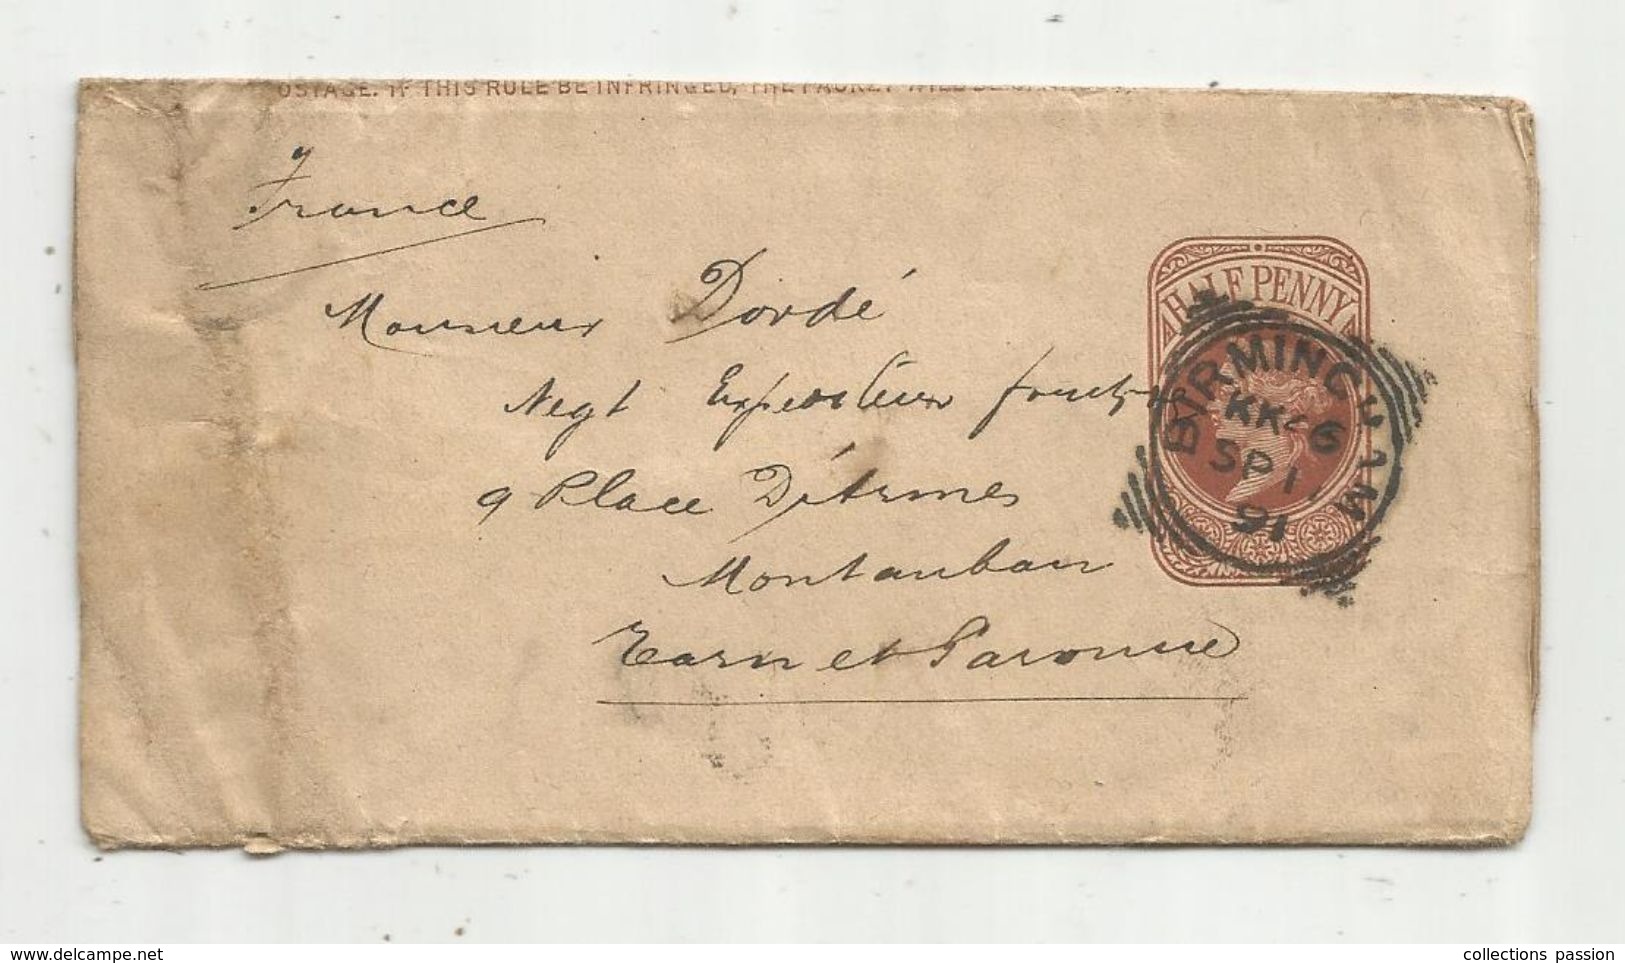 OSTAGE. IF THIS RULE BE INFRINGED, THE PACKET WILL BE
France
Monsieur Dordé
Negt Expéditeur fruits
9 Place D'Armes
Montauban
Tarn et Garonne
HALF PENNY
BIRMINGHAM
KK 26
SP 1
91
www.delcampe.net
collections passion